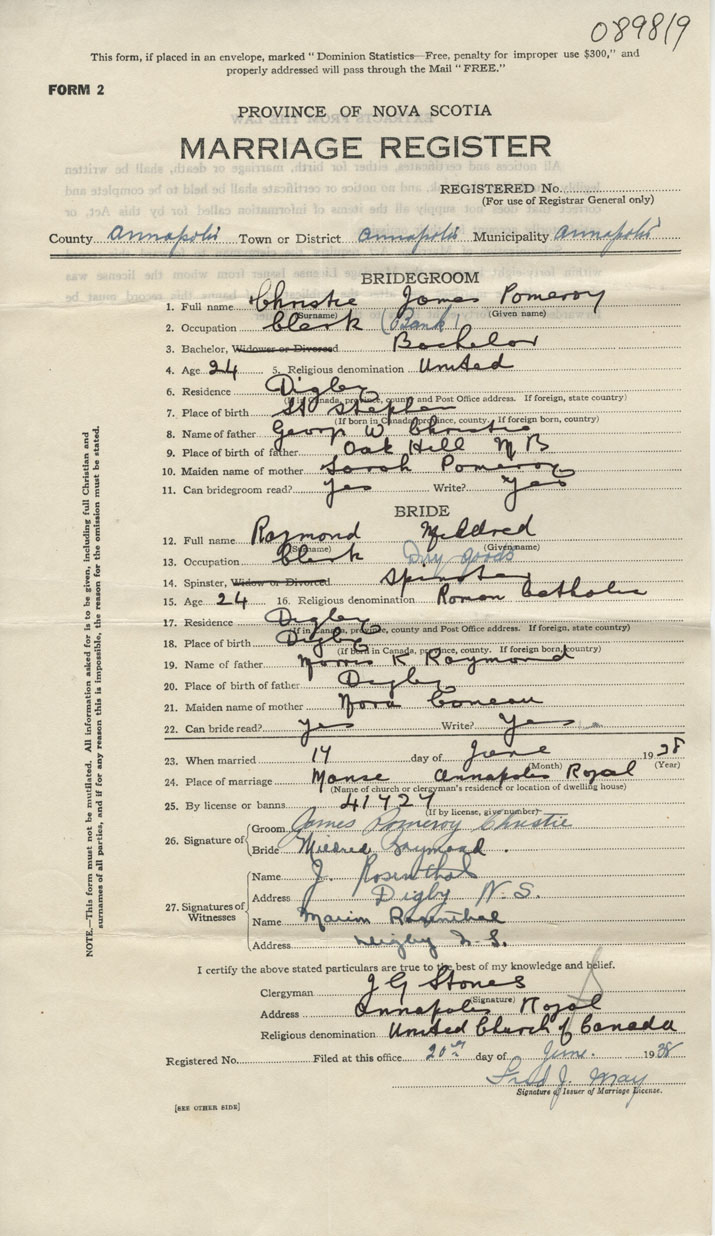 089819
This form, if placed in an envelope, marked "Dominion Statistics—Free, penalty for improper use $300," and
properly addressed will pass through the Mail "FREE."
FORM 2
PROVINCE OF NOVA SCOTIA
MARRIAGE REGISTER
REGISTERED No.
(For use of Registrar General only)
County Annapolis Town or District Annapolis Municipality Annapolis
BRIDEGROOM
1. Full name Christie James Pomeroy
(Surname) (Given name)
2. Occupation Clerk (Bank)
3. Bachelor, Widower or Divorced Bachelor
4. Age 24 5. Religious denomination United
6. Residence Digby
(If in Canada, province, county and Post Office address. If foreign, state country)
7. Place of birth St Stephen
(If born in Canada, province, county. If foreign born, country)
8. Name of father George W Christie
9. Place of birth of father Oak Hill N B
10. Maiden name of mother Sarah Pomeroy
11. Can bridegroom read? Yes Write? Yes
BRIDE
12. Full name Raymond Mildred
(Surname) (Given name)
13. Occupation Clerk Dry goods
14. Spinster, Widow or Divorced Spinster
15. Age 24 16. Religious denomination Roman Catholic
17. Residence Digby
(If in Canada, province, county and Post Office address. If foreign, state country)
18. Place of birth Digby
(If born in Canada, province, county. If foreign born, country)
19. Name of father Morris K Raymond
20. Place of birth of father Digby
21. Maiden name of mother Nora Comeau
22. Can bride read? Yes Write? Yes
23. When married 14 day of June 1938
(Month) (Year)
24. Place of marriage Manse Annapolis Royal
(Name of church or clergyman's residence or location of dwelling house)
25. By license or banns 41427
(If by license, give number)
26. Signature of Groom James Pomeroy Christie
Bride Mildred Raymond.
27. Signatures of Witnesses
Name J. Rosenthal
Address Digby N.S.
Name Marion Rosenthal
Address Digby N.S.
I certify the above stated particulars are true to the best of my knowledge and belief.
Clergyman J G Stones
(Signature)
Address Annapolis Royal
Religious denomination United Church of Canada
Registered No. Filed at this office 20th day of June. 1938
Fred J. May
Signature of Issuer of Marriage License.
[SEE OTHER SIDE]
NOTE.—This form must not be mutilated. All information asked for is to be given, including full Christian and
surnames of all parties, and if for any reason this is impossible, the reason for the omission must be stated.